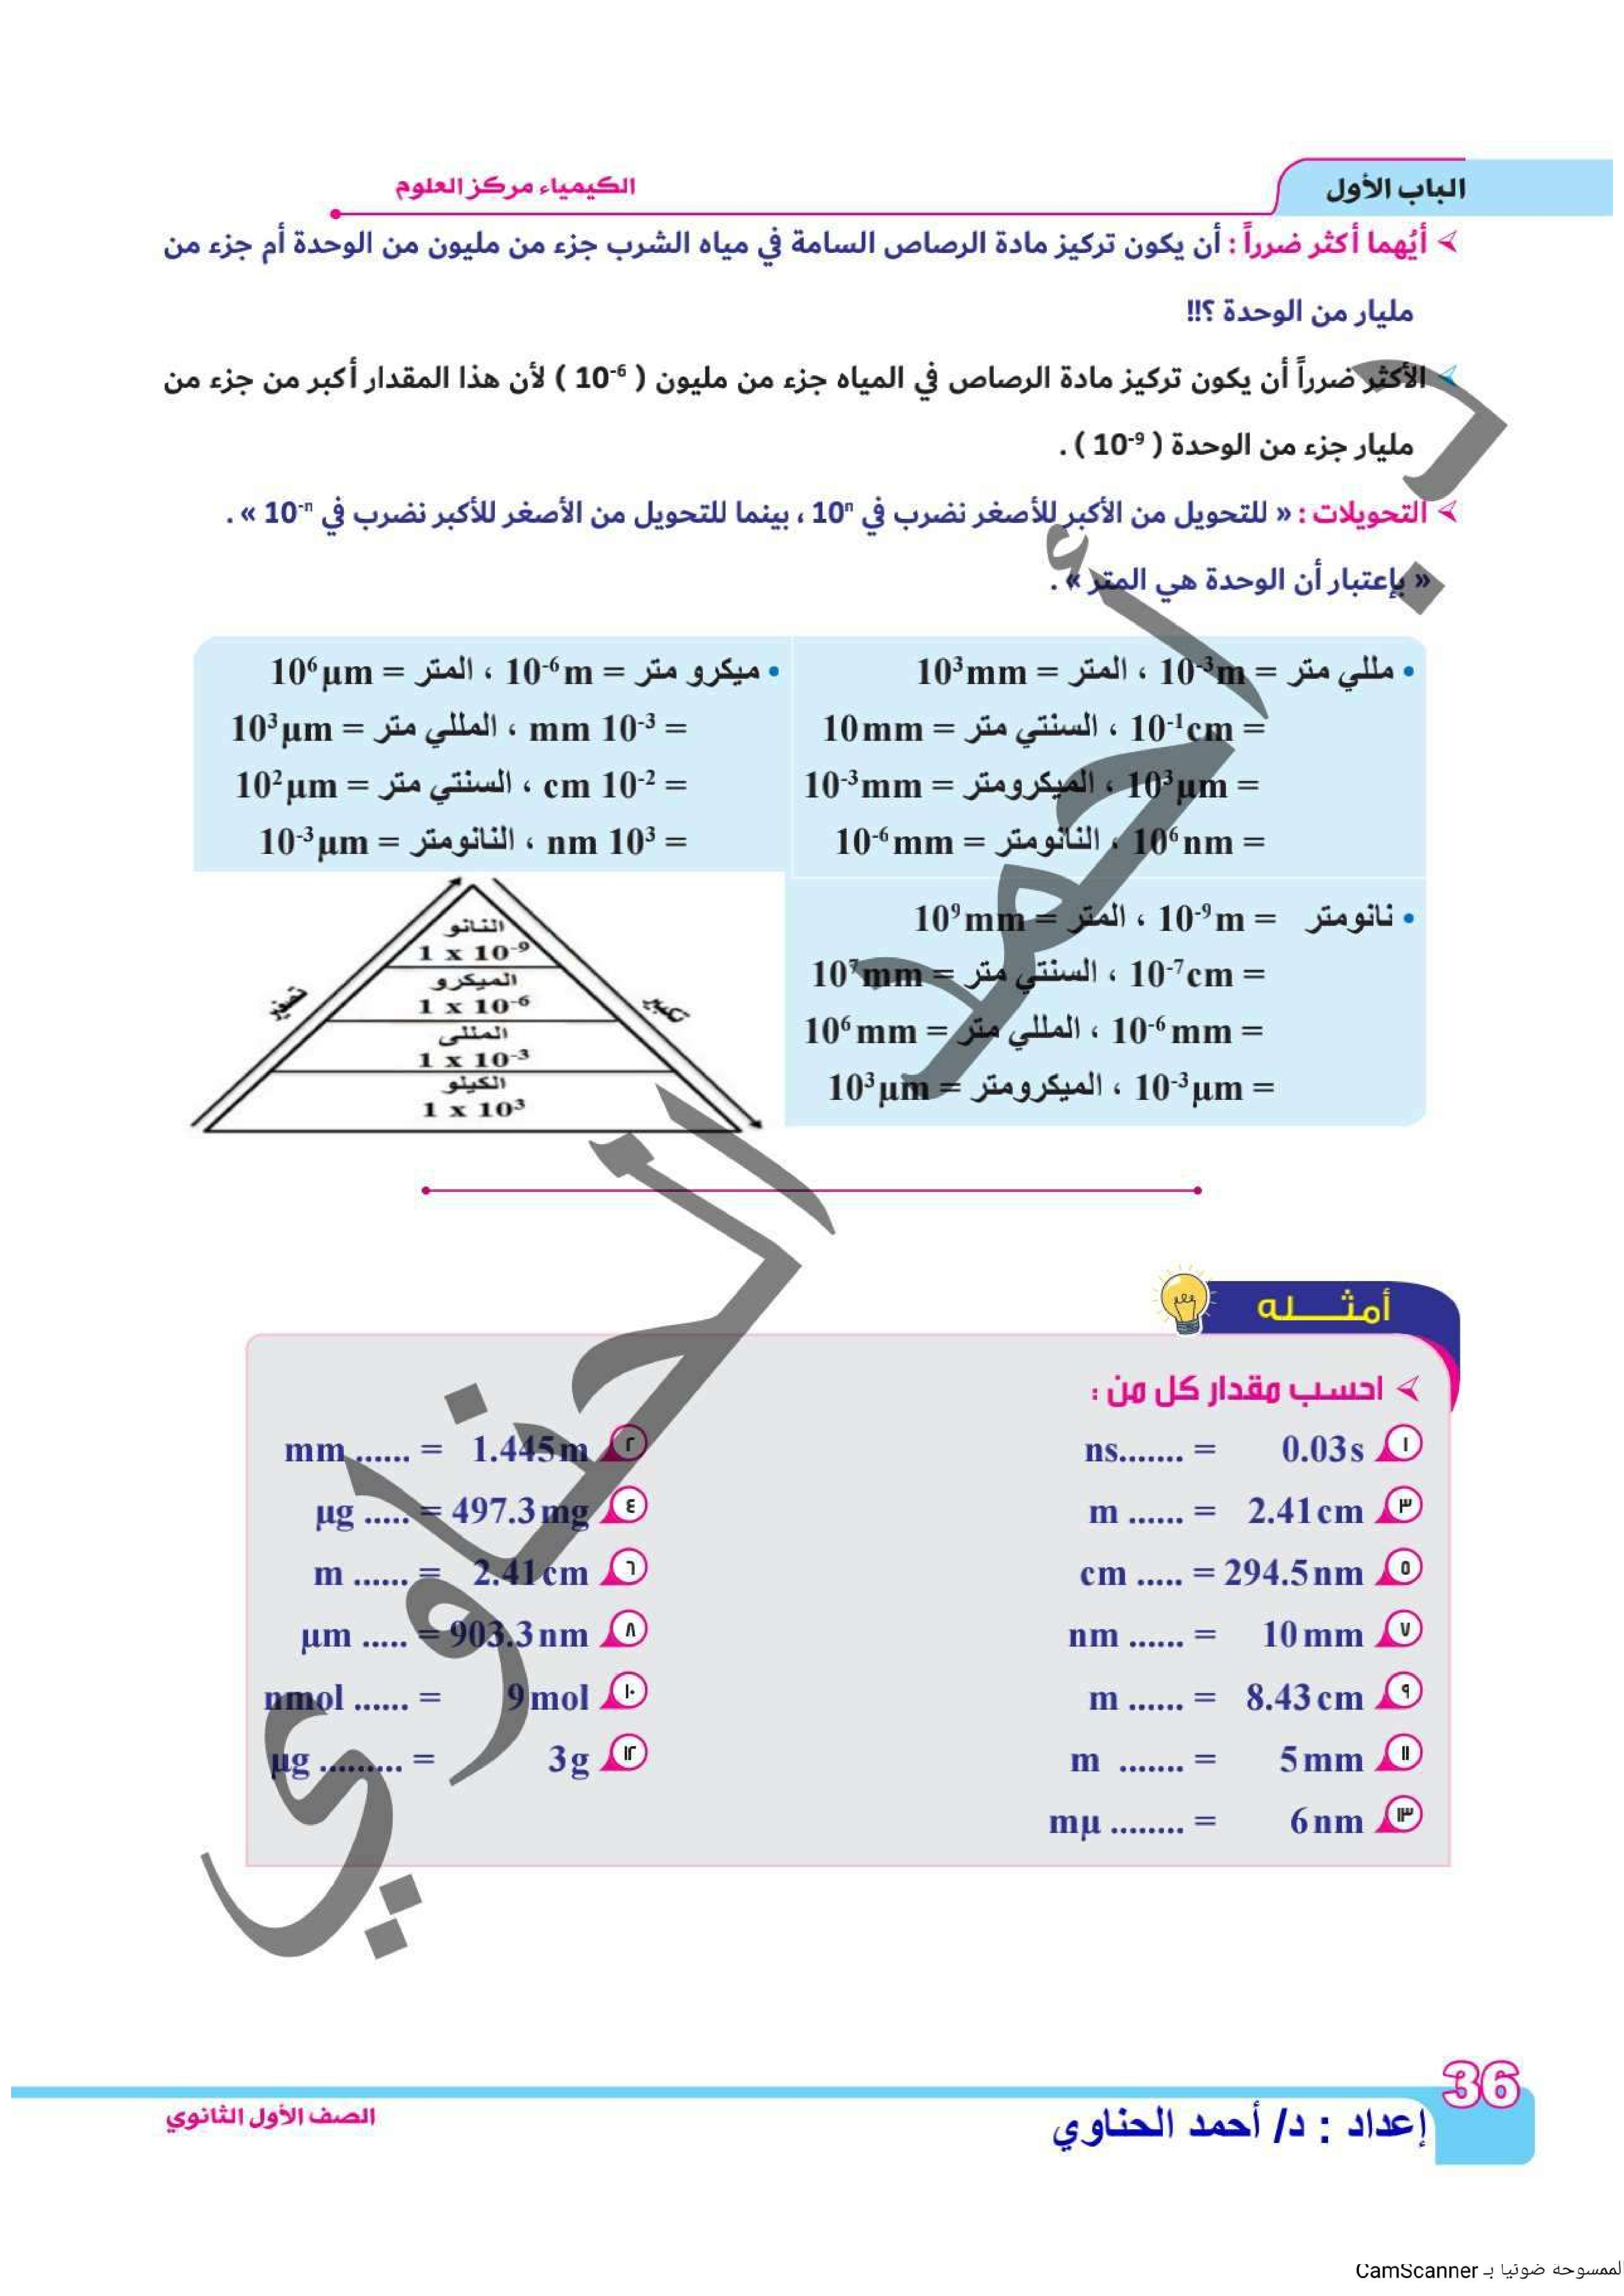 الباب الأول
الكيمياء مركز العلوم
أيُهما أكثر ضرراً : أن يكون تركيز مادة الرصاص السامة في مياه الشرب جزء من مليون من الوحدة أم جزء من
مليار من الوحدة ؟!!
الأكثر ضرراً أن يكون تركيز مادة الرصاص في المياه جزء من مليون ( 10⁻⁶ ) لأن هذا المقدار أكبر من جزء من
مليار جزء من الوحدة ( 10⁻⁹ ) .
التحويلات : « للتحويل من الأكبر للأصغر نضرب في 10ⁿ ، بينما للتحويل من الأصغر للأكبر نضرب في 10⁻ⁿ » .
« بإعتبار أن الوحدة هي المتر » .
• مللي متر = 10⁻³m ، المتر = 10³mm
= 10⁻¹cm ، السنتي متر = 10mm
= 10³µm ، الميكرومتر = 10⁻³mm
= 10⁶nm ، النانومتر = 10⁻⁶mm
• ميكرو متر = 10⁻⁶m ، المتر = 10⁶µm
= 10⁻³ mm ، المللي متر = 10³µm
= 10⁻² cm ، السنتي متر = 10²µm
= 10³ nm ، النانومتر = 10⁻³µm
• نانومتر = 10⁻⁹m ، المتر = 10⁹mm
= 10⁻⁷cm ، السنتي متر = 10⁷mm
= 10⁻⁶mm ، المللي متر = 10⁶mm
= 10⁻³µm ، الميكرومتر = 10³µm
النانو
1 x 10⁻⁹
الميكرو
1 x 10⁻⁶
المللى
1 x 10⁻³
الكيلو
1 x 10³
تصغير
تكبير
أمثـــله
احسب مقدار كل من :
١ 0.03s = .......ns
٢ 1.445m = ...... mm
٣ 2.41cm = ...... m
٤ 497.3mg = ..... µg
٥ 294.5nm = ..... cm
٦ 2.41cm = ...... m
٧ 10mm = ...... nm
٨ 903.3nm = ..... µm
٩ 8.43cm = ...... m
١٠ 9mol = ...... nmol
١١ 5mm = ....... m
١٢ 3g = ......... µg
١٣ 6nm = ........ mµ
د. أحمد الحناوي
36
إعداد : د/ أحمد الحناوي
الصف الأول الثانوي
الممسوحة ضوئيا بـ CamScanner